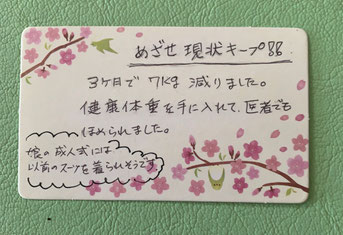 めざせ現状キープ!!
3ヶ月で7kg減りました。
健康体重を手に入れて、医者でも
ほめられました。
娘の成人式には
以前のスーツを着られそうです